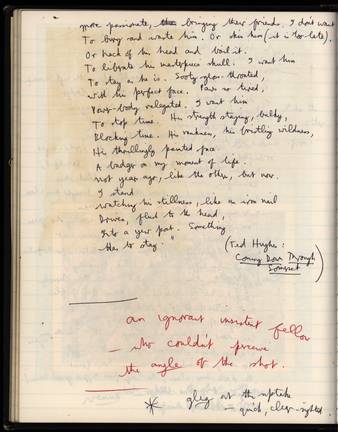 more passionate, bringing their friends. I don't want
To bury and waste him. Or skin him (it is too late).
Or hack off his head and boil it
To liberate his masterpiece skull. I want him
To stay as he is. Sooty gloss-throated,
with his perfect face. Paws so tired,
Power-body relegated. I want him
To stop time. His strength staying, bulky,
Blocking time. His rankness, his bristling wildness,
His thrillingly painted face.
A badger on my moment of life.
Not years ago, like the others, but now.
I stand
watching his stillness, like an iron nail
Driven, flush to the head,
Into a yew post. Something
Has to stay."
(Ted Hughes:
Coming Down Through
Somerset)
an ignorant insistent fellow
– who couldn't perceive
the angle of the shot.
* gleg at the uptake
– quick, clear-sighted.